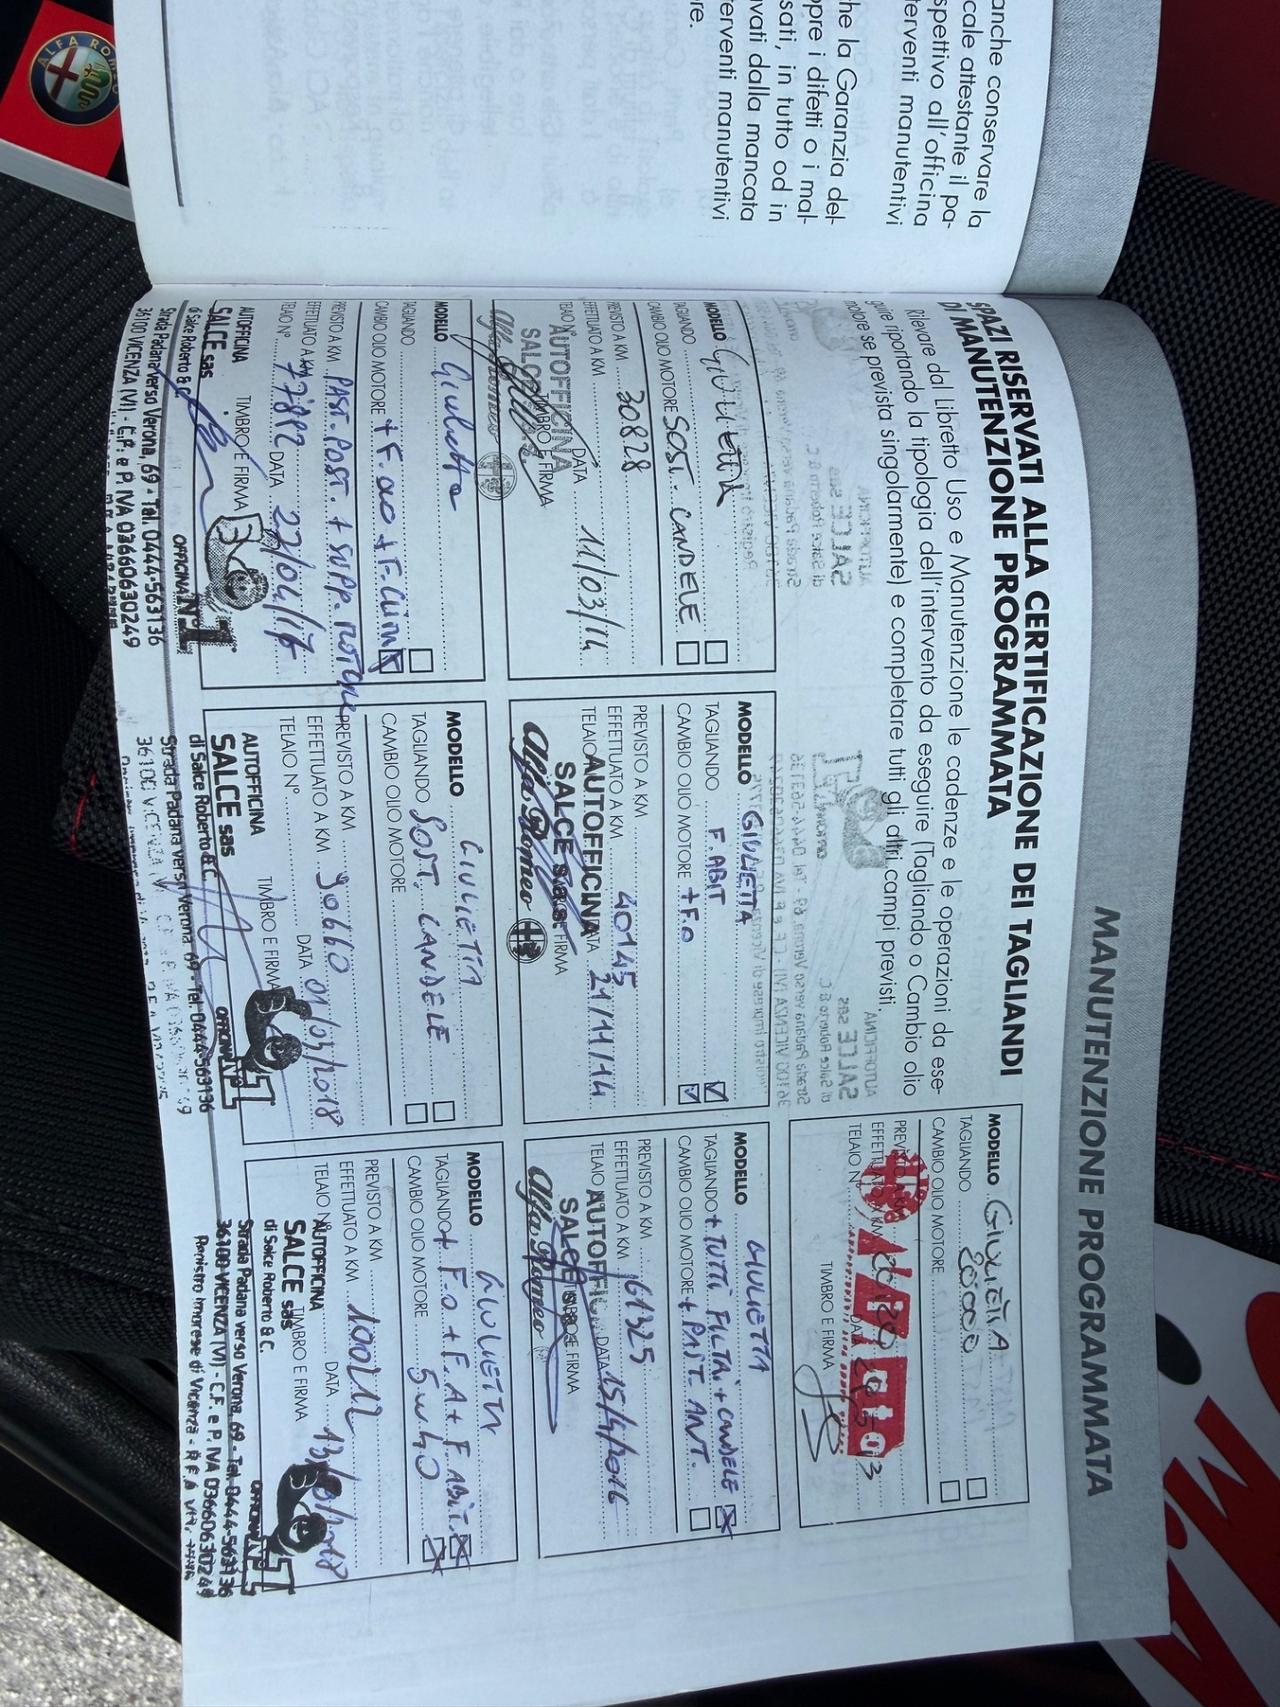 anche conservare la
cale attestante il pa-
spettivo all'officina
terventi manutentivi
he la Garanzia del-
pre i difetti o i mal-
sati, in tutto od in
vati dalla mancata
terventi manutentivi
re.
ALFA ROMEO
MANUTENZIONE PROGRAMMATA
SPAZI RISERVATI ALLA CERTIFICAZIONE DEI TAGLIANDI
DI MANUTENZIONE PROGRAMMATA
Rilevare dal Libretto Uso e Manutenzione le cadenze e le operazioni da ese-
guire riportando la tipologia dell'intervento da eseguire (Tagliando o Cambio olio
motore se prevista singolarmente) e completare tutti gli altri campi previsti.
MODELLO GIULIETTA
TAGLIANDO
CAMBIO OLIO MOTORE
PREVISTO A KM
EFFETTUATO A KM
TELAIO N° DATA
TIMBRO E FIRMA
MODELLO GIULIETTA
TAGLIANDO
CAMBIO OLIO MOTORE SOST. CANDELE
PREVISTO A KM 30828
EFFETTUATO A KM
TELAIO N° DATA 11/03/14
TIMBRO E FIRMA
AUTOFFICINA
SALCE s.a.s.
Alfa Romeo
MODELLO GIULIETTA
TAGLIANDO F. ABIT
CAMBIO OLIO MOTORE + F.O
PREVISTO A KM
EFFETTUATO A KM 40145
TELAIO DATA 21/11/14
FIRMA
AUTOFFICINA
SALCE s.a.s
Alfa Romeo
MODELLO GIULIETTA
TAGLIANDO + TUTTI FILTRI + CANDELE
CAMBIO OLIO MOTORE + PAST. ANT.
PREVISTO A KM
EFFETTUATO A KM 61325
TELAIO DATA 15/4/2016
FIRMA
SALCE
Alfa Romeo
MODELLO Giulietta
TAGLIANDO
CAMBIO OLIO MOTORE
PREVISTO A KM PAST. POST. + SUPP.
EFFETTUATO A KM 77882 DATA 27/04/17
TELAIO N°
TIMBRO E FIRMA
AUTOFFICINA
SALCE sas
di Salce Roberto & C.
OFFICINA N°1
Strada Padana verso Verona, 69 - Tel. 0444-563136
36100 VICENZA (VI) - C.F. e P. IVA 03660630249
MODELLO GIULIETTA
TAGLIANDO SOST. CANDELE
CAMBIO OLIO MOTORE
PREVISTO A KM
EFFETTUATO A KM 90660
TELAIO N° DATA 01/03/2018
TIMBRO E FIRMA
AUTOFFICINA
SALCE sas
di Salce Roberto & C.
Strada Padana verso Verona, 69 - Tel. 0444-563136
MODELLO GIULIETTA
TAGLIANDO + F.O + F.A + F. ABIT.
CAMBIO OLIO MOTORE 5W40
PREVISTO A KM
EFFETTUATO A KM
TELAIO N° DATA
TIMBRO E FIRMA
AUTOFFICINA
SALCE sas
di Salce Roberto & C.
Strada Padana verso Verona, 69 - Tel. 0444-563136
36100 VICENZA (VI) - C.F. e P. IVA 03660630249
Registro Imprese di Vicenza